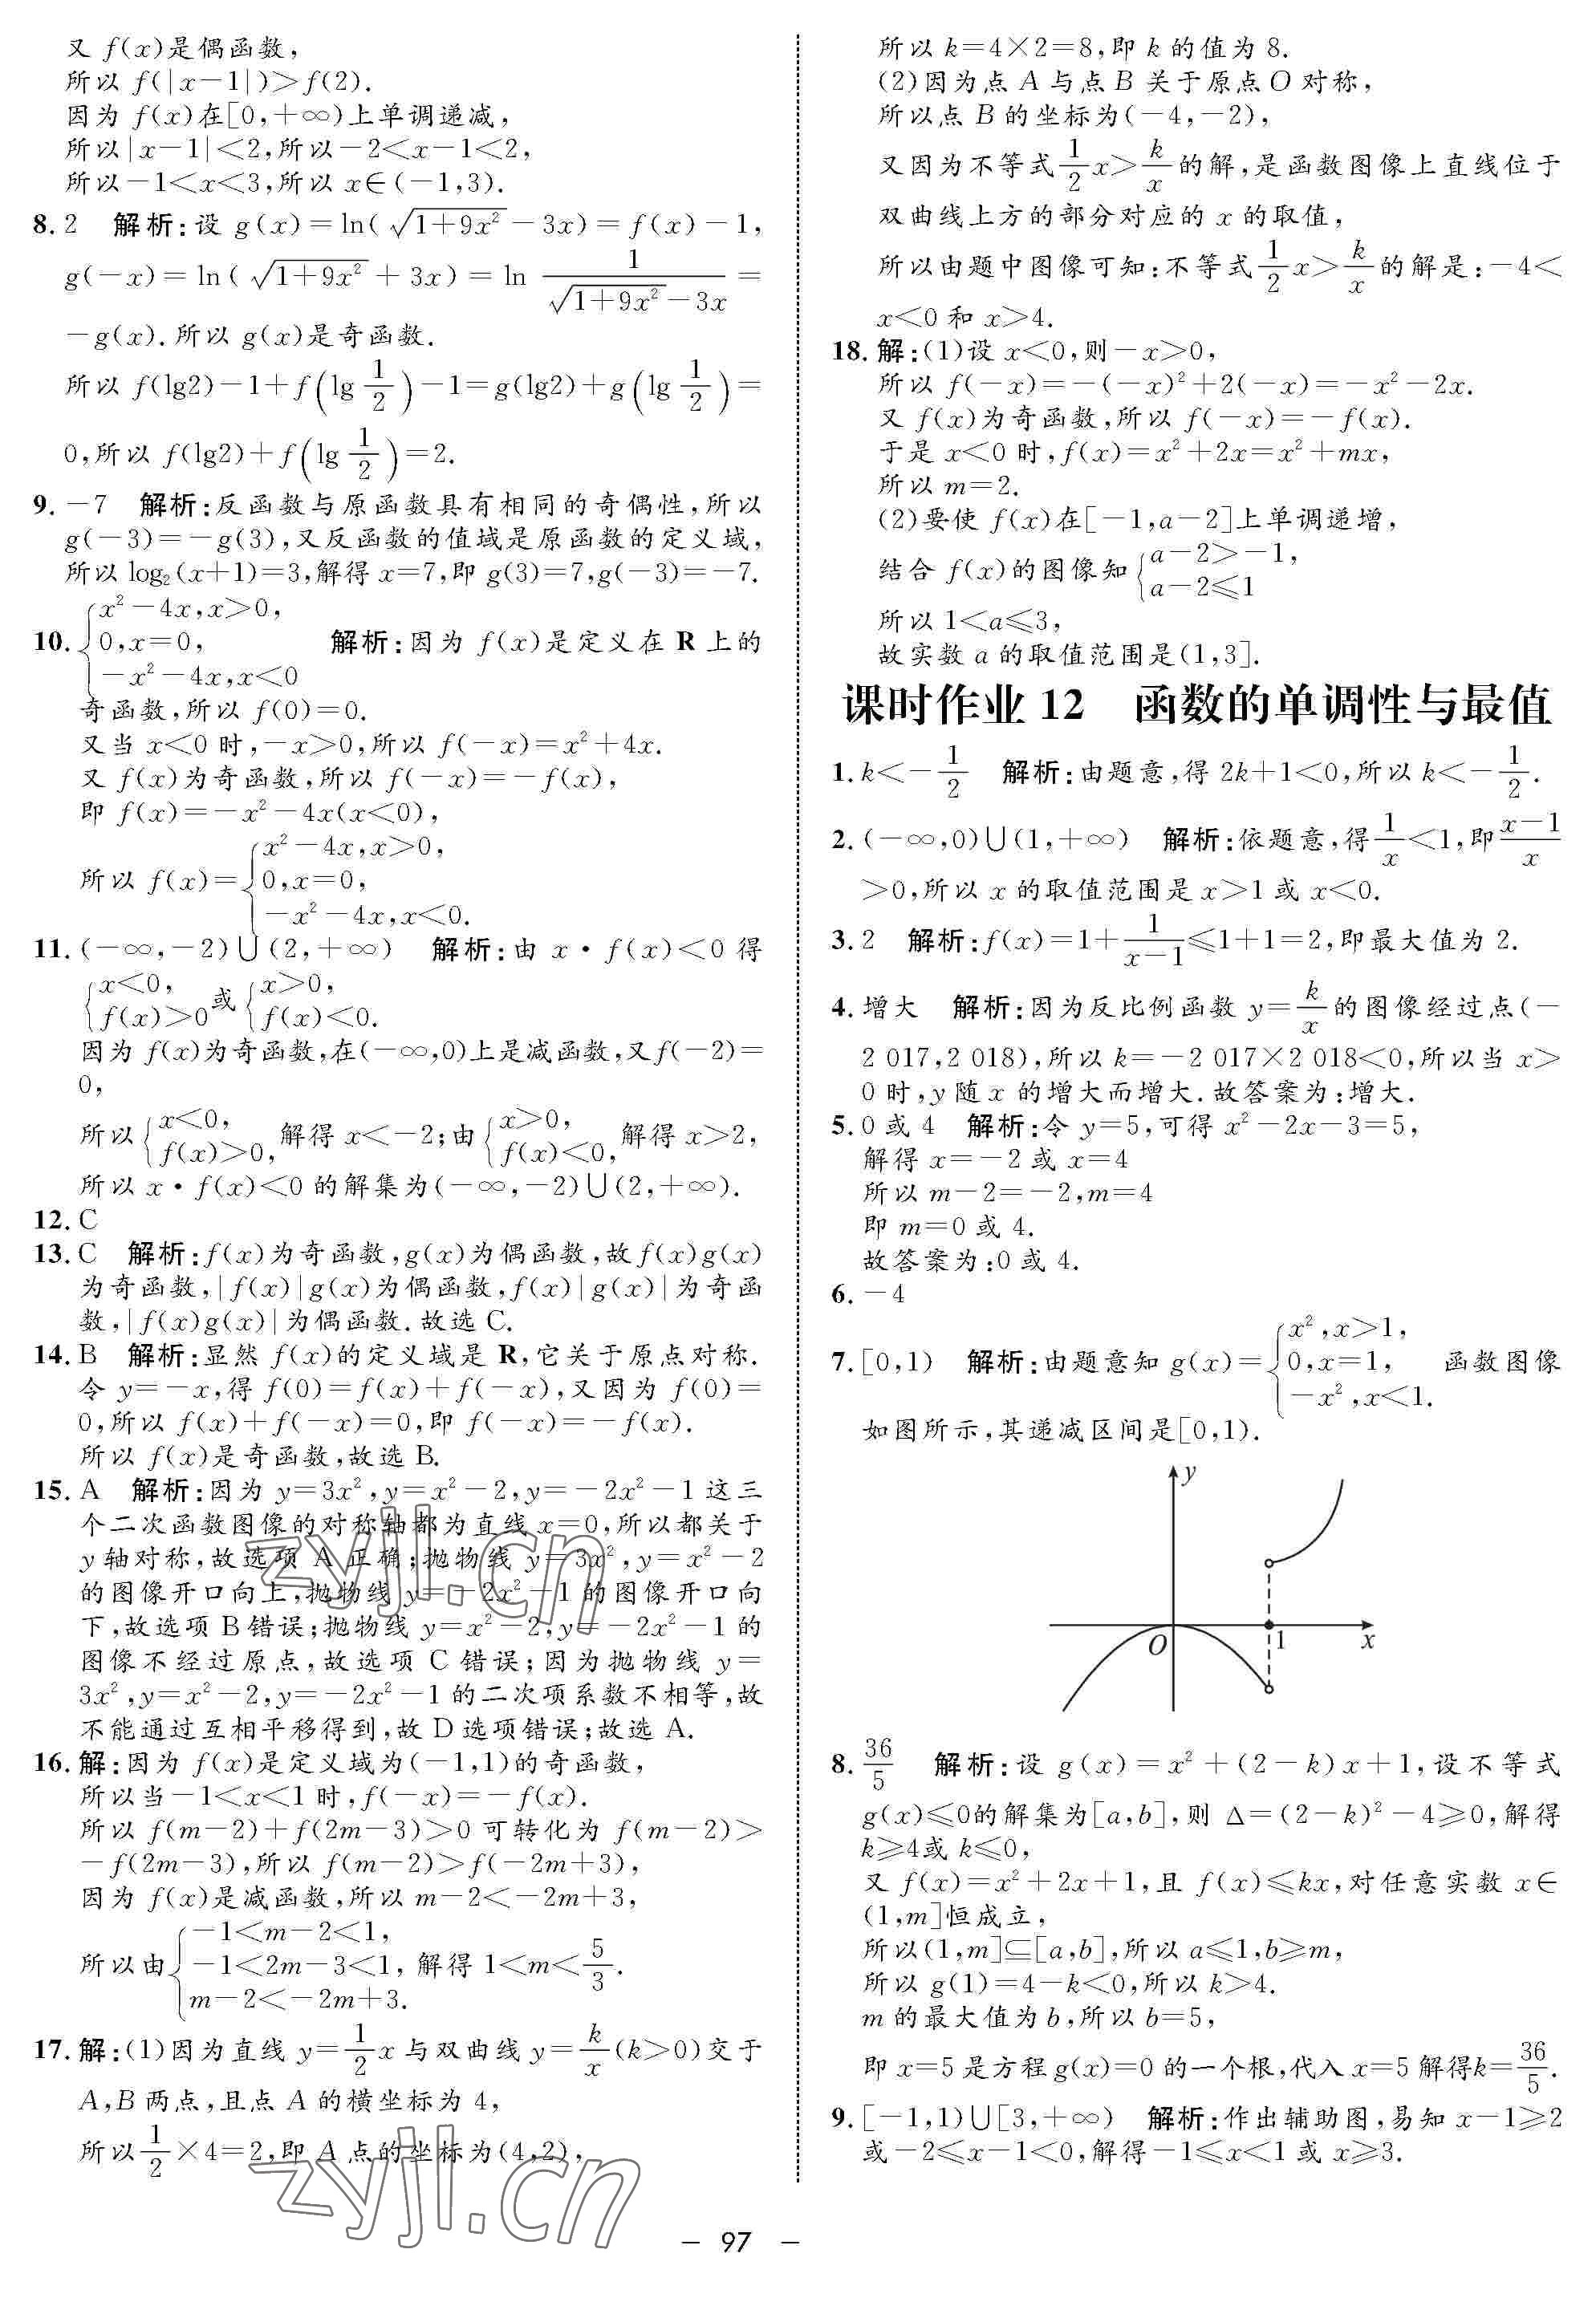 又 f(x)是偶函数,
所以 f(|x－1|)＞f(2).
因为 f(x)在[0,＋∞)上单调递减,
所以|x－1|＜2,所以－2＜x－1＜2,
所以－1＜x＜3,所以 x∈(－1,3).
8. 2 解析:设 g(x)＝ln(√(1＋9x²)－3x)＝f(x)－1,
g(－x)＝ln(√(1＋9x²)＋3x)＝ln 1/(√(1＋9x²)－3x)＝
－g(x).所以 g(x)是奇函数.
所以 f(lg2)－1＋f(lg 1/2)－1＝g(lg2)＋g(lg 1/2)＝
0,所以 f(lg2)＋f(lg 1/2)＝2.
9. －7 解析:反函数与原函数具有相同的奇偶性,所以
g(－3)＝－g(3),又反函数的值域是原函数的定义域,
所以 log₂(x＋1)＝3,解得 x＝7,即 g(3)＝7,g(－3)＝－7.
10. {x²－4x,x＞0, 0,x＝0, －x²－4x,x＜0 解析:因为 f(x)是定义在 R 上的
奇函数,所以 f(0)＝0.
又当 x＜0 时,－x＞0,所以 f(－x)＝x²＋4x.
又 f(x)为奇函数,所以 f(－x)＝－f(x),
即 f(x)＝－x²－4x(x＜0),
所以 f(x)＝{x²－4x,x＞0, 0,x＝0, －x²－4x,x＜0.
11. (－∞,－2)∪(2,＋∞) 解析:由 x·f(x)＜0 得
{x＜0, f(x)＞0 或 {x＞0, f(x)＜0.
因为 f(x)为奇函数,在(－∞,0)上是减函数,又f(－2)＝
0,
所以{x＜0, f(x)＞0, 解得 x＜－2;由{x＞0, f(x)＜0, 解得 x＞2,
所以 x·f(x)＜0 的解集为(－∞,－2)∪(2,＋∞).
12. C
13. C 解析:f(x)为奇函数,g(x)为偶函数,故f(x)g(x)
为奇函数,|f(x)|g(x)为偶函数,f(x)|g(x)|为奇函
数,|f(x)g(x)|为偶函数.故选 C.
14. B 解析:显然 f(x)的定义域是 R,它关于原点对称.
令 y＝－x,得 f(0)＝f(x)＋f(－x),又因为 f(0)＝
0,所以 f(x)＋f(－x)＝0,即 f(－x)＝－f(x).
所以 f(x)是奇函数,故选 B.
15. A 解析:因为 y＝3x²,y＝x²－2,y＝－2x²－1 这三
个二次函数图像的对称轴都为直线 x＝0,所以都关于
y 轴对称,故选项 A 正确;抛物线 y＝3x²,y＝x²－2
的图像开口向上,抛物线 y＝－2x²－1 的图像开口向
下,故选项 B 错误;抛物线 y＝x²－2,y＝－2x²－1 的
图像不经过原点,故选项 C 错误;因为抛物线 y＝
3x²,y＝x²－2,y＝－2x²－1 的二次项系数不相等,故
不能通过互相平移得到,故 D 选项错误;故选 A.
16. 解:因为 f(x)是定义域为(－1,1)的奇函数,
所以当－1＜x＜1 时,f(－x)＝－f(x).
所以 f(m－2)＋f(2m－3)＞0 可转化为 f(m－2)＞
－f(2m－3),所以 f(m－2)＞f(－2m＋3),
因为 f(x)是减函数,所以 m－2＜－2m＋3,
所以由{－1＜m－2＜1, －1＜2m－3＜1, m－2＜－2m＋3. 解得 1＜m＜5/3.
17. 解:(1)因为直线 y＝1/2 x 与双曲线 y＝k/x(k＞0)交于
A,B 两点,且点 A 的横坐标为 4,
所以1/2×4＝2,即 A 点的坐标为(4,2),
所以 k＝4×2＝8,即 k 的值为 8.
(2)因为点 A 与点 B 关于原点 O 对称,
所以点 B 的坐标为(－4,－2),
又因为不等式1/2 x＞k/x的解,是函数图像上直线位于
双曲线上方的部分对应的 x 的取值,
所以由题中图像可知:不等式1/2 x＞k/x的解是:－4＜
x＜0 和 x＞4.
18. 解:(1)设 x＜0,则－x＞0,
所以 f(－x)＝－(－x)²＋2(－x)＝－x²－2x.
又 f(x)为奇函数,所以 f(－x)＝－f(x).
于是 x＜0 时,f(x)＝x²＋2x＝x²＋mx,
所以 m＝2.
(2)要使 f(x)在[－1,a－2]上单调递增,
结合 f(x)的图像知{a－2＞－1, a－2≤1
所以 1＜a≤3,
故实数 a 的取值范围是(1,3].
课时作业 12 函数的单调性与最值
1. k＜－1/2 解析:由题意,得 2k＋1＜0,所以 k＜－1/2.
2. (－∞,0)∪(1,＋∞) 解析:依题意,得1/x＜1,即(x－1)/x
＞0,所以 x 的取值范围是 x＞1 或 x＜0.
3. 2 解析:f(x)＝1＋1/(x－1)≤1＋1＝2,即最大值为 2.
4. 增大 解析:因为反比例函数 y＝k/x的图像经过点(－
2 017,2 018),所以 k＝－2 017×2 018＜0,所以当 x＞
0 时,y 随 x 的增大而增大.故答案为:增大.
5. 0 或 4 解析:令 y＝5,可得 x²－2x－3＝5,
解得 x＝－2 或 x＝4
所以 m－2＝－2,m＝4
即 m＝0 或 4.
故答案为:0 或 4.
6. －4
7. [0,1) 解析:由题意知 g(x)＝{x²,x＞1, 0,x＝1, －x²,x＜1. 函数图像
如图所示,其递减区间是[0,1).
y
O
1
x
8. 36/5 解析:设 g(x)＝x²＋(2－k)x＋1,设不等式
g(x)≤0的解集为[a,b],则 Δ＝(2－k)²－4≥0,解得
k≥4或 k≤0,
又 f(x)＝x²＋2x＋1,且 f(x)≤kx,对任意实数 x∈
(1,m]恒成立,
所以(1,m]⊆[a,b],所以 a≤1,b≥m,
所以 g(1)＝4－k＜0,所以 k＞4.
m 的最大值为 b,所以 b＝5,
即 x＝5 是方程 g(x)＝0 的一个根,代入 x＝5 解得k＝36/5.
9. [－1,1)∪[3,＋∞) 解析:作出辅助图,易知 x－1≥2
或－2≤x－1＜0,解得－1≤x＜1 或 x≥3.
zyjl.cn
zyjl.cn
－ 97 －